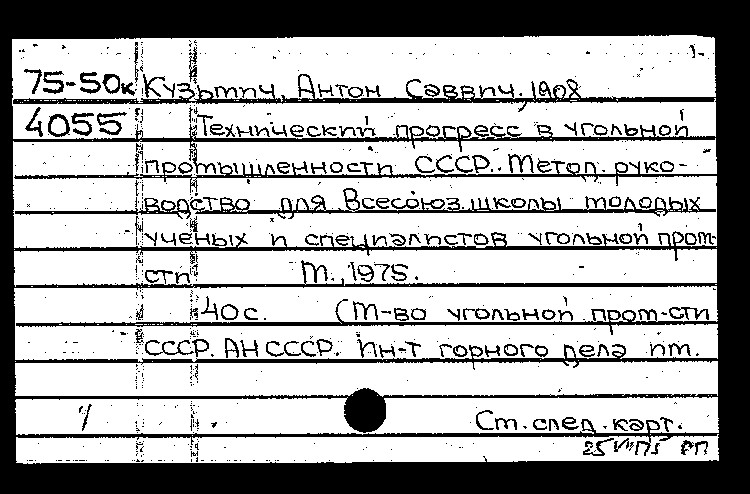 75-50к Кузьмич, Антон Саввич, 1908
4055 Технический прогресс в угольной
промышленности СССР. Метод. руко-
водство для Всесоюз. школы молодых
ученых и специалистов угольной пром-
сти М., 1975.
40 с. (М-во угольной пром-сти
СССР. АН СССР. Ин-т горного дела им.
Ст. след. карт.